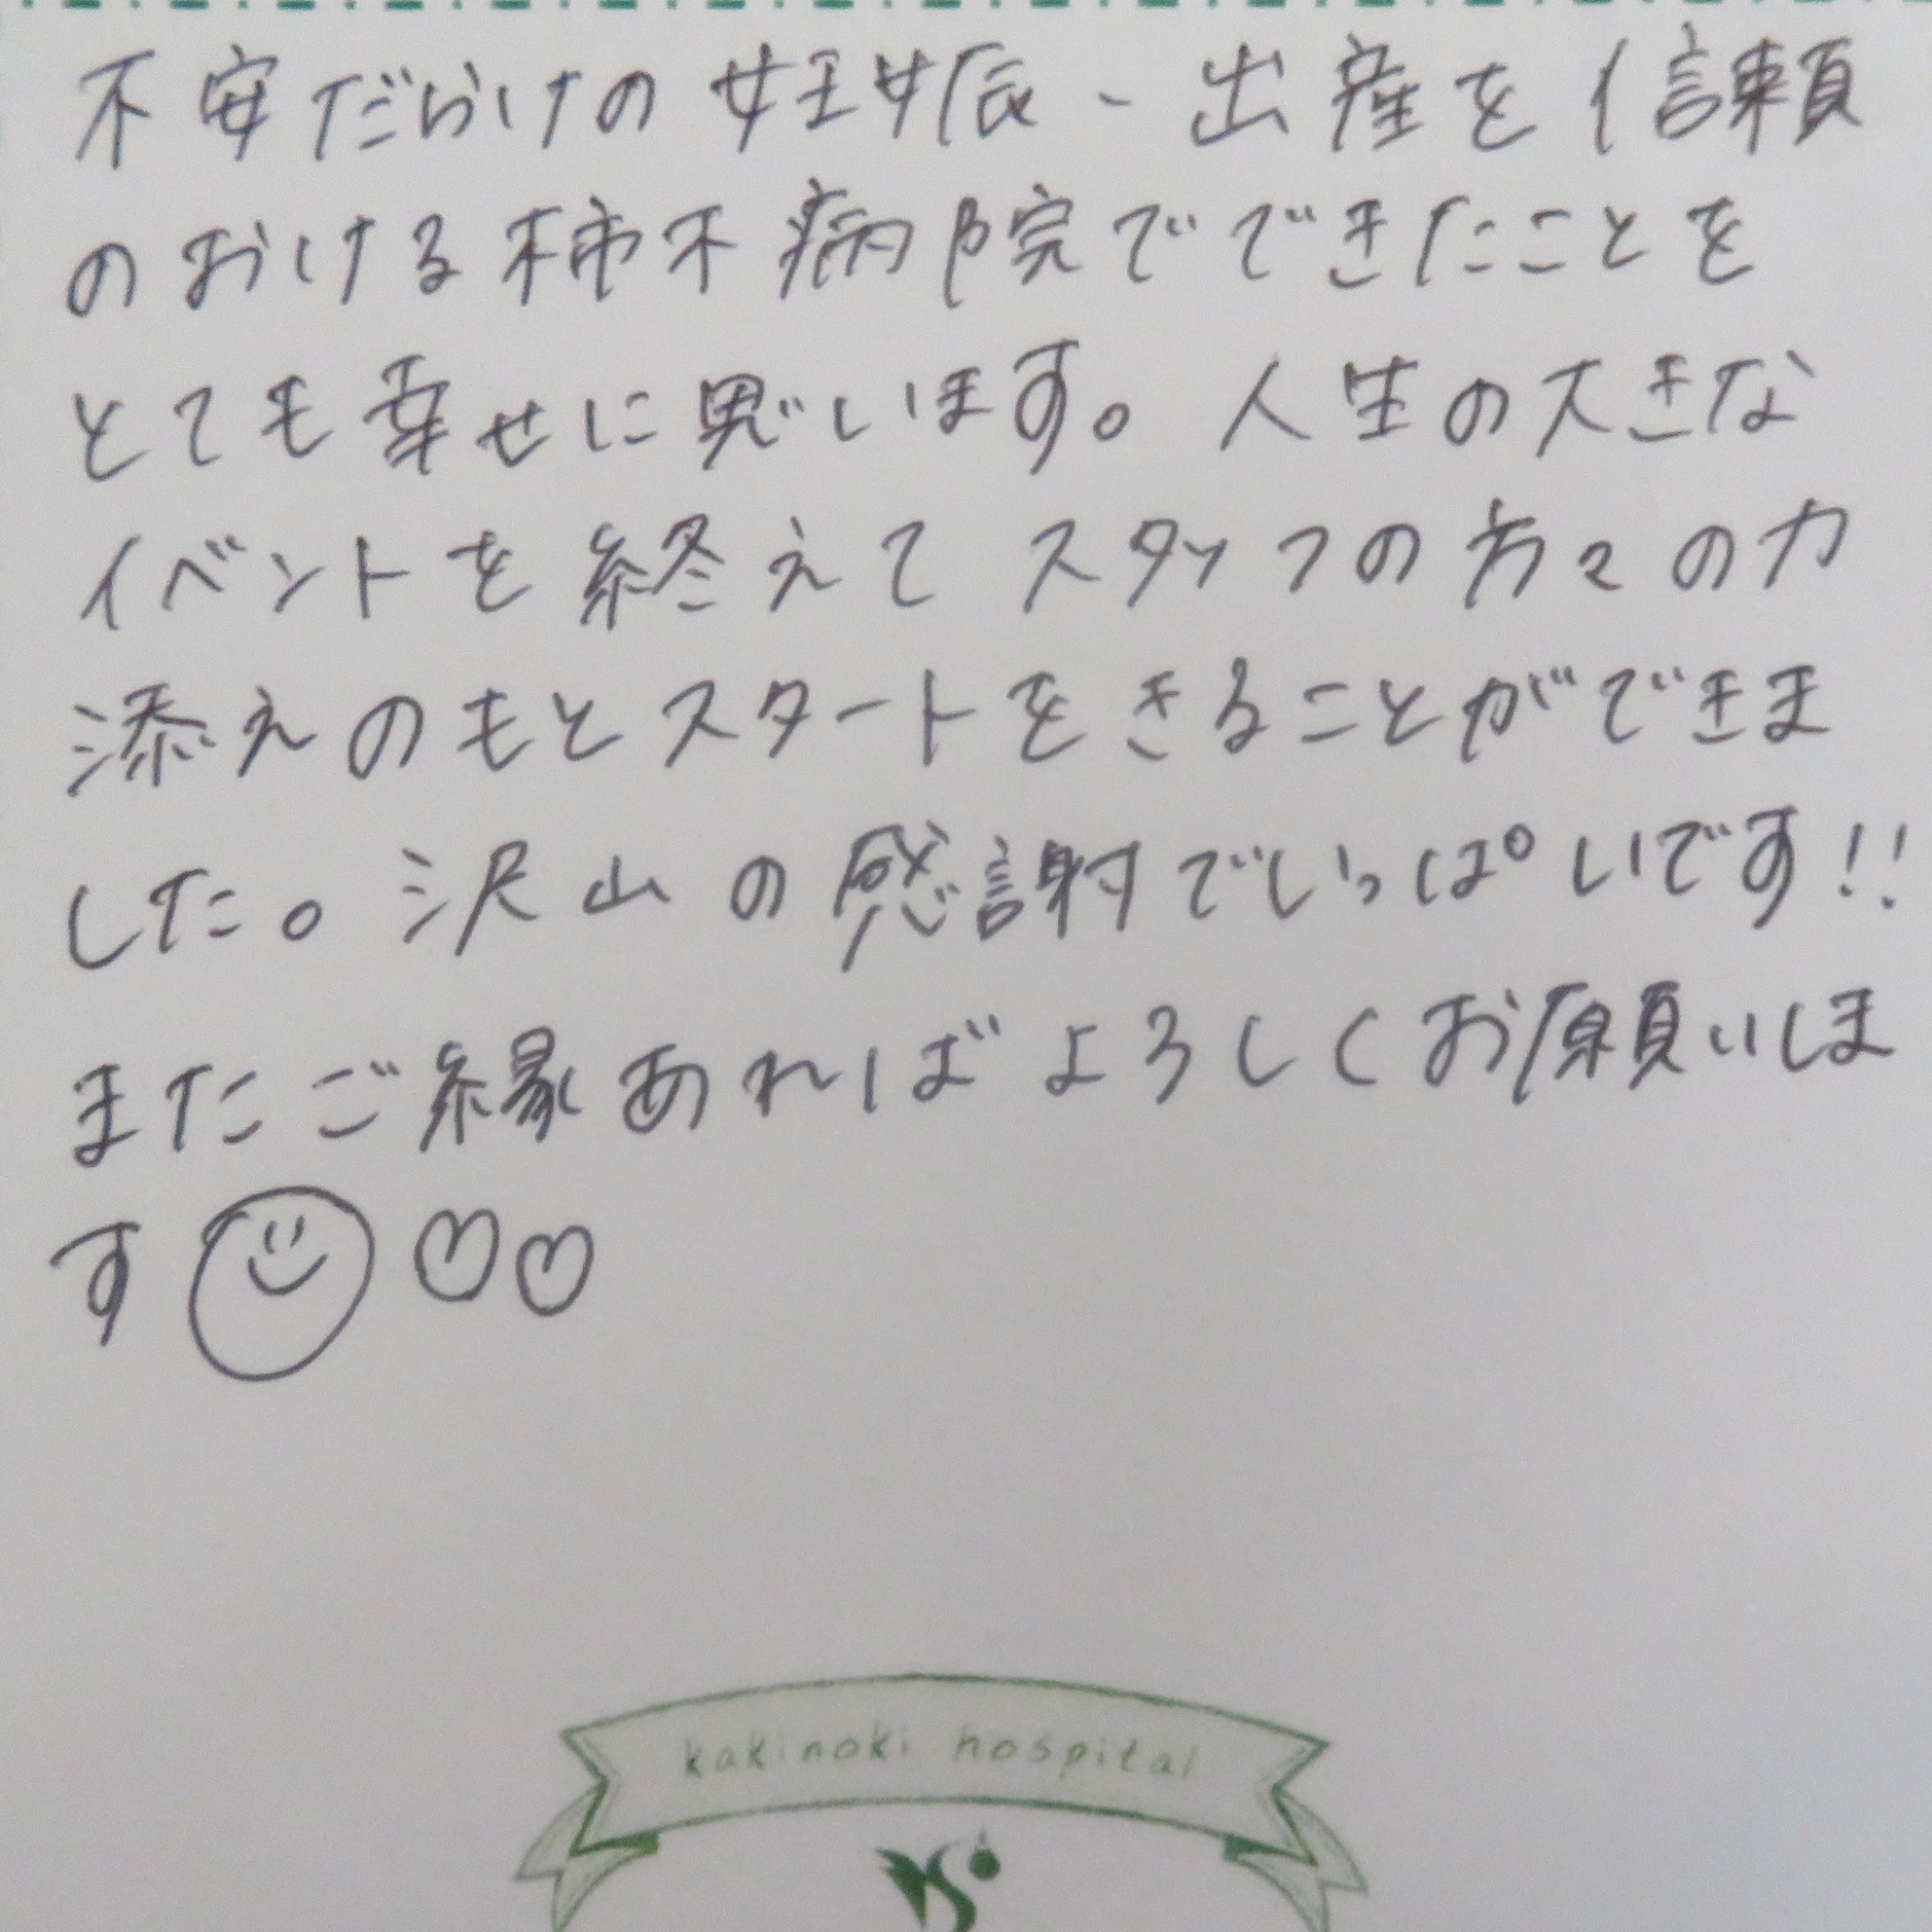 不安だらけの妊娠、出産を信頼
のおける柿木病院でできたことを
とても幸せに思います。人生の大きな
イベントを終えてスタッフの方々の力
添えのもとスタートをきることができま
した。沢山の感謝でいっぱいです!!
またご縁あればよろしくお願いしま
す
kakinoki hospital